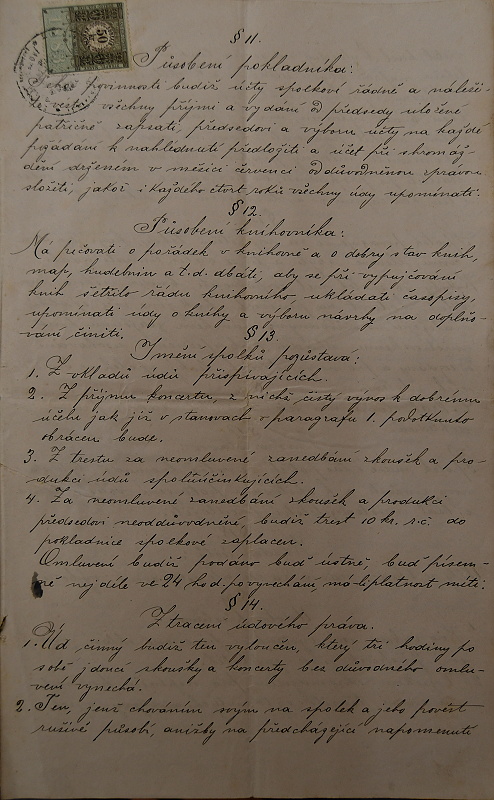 § 11.
Působení pokladníka:
Jeho povinností budiž účty spolkové řádně a náleži-
vésti všechny příjmi a vydání od předsedy uložené
patřičně zapsati, předsedovi a výboru účty na každé
požádání k nahlédnutí předložiti a účet při shromáž-
dění drženém v měsíci červenci odůvodněnou zprávou
složiti, jakož i každého čtvrt roku všechny údy upomínati.
§ 12.
Působení knihovníka:
Má pečovati o pořádek v knihovně a o dobrý stav knih,
map, hudebnin a t. d. dbáti, aby se při vypujčování
knih šetřilo řádu knihovního, ukládati časopisy,
upomínati údy o knihy a výboru návrhy na doplňo-
vání činiti.
§ 13.
Jmění spolků pozůstává:
1. Z vkladů údů přispívajících.
2. Z příjmu koncertu, z nichž čistý výnos k dobrému
účelu jak již v stanovách o paragrafu 1. podotknuto
obrácen bude.
3. Z trestu za neomluvené zanedbání zkoušek a pro-
dukcí údů spoluúčinkujících.
4. Za neomluvené zanedbání zkoušek a produkcí
předsedovi neodůvodněné, budiž trest 10 kr. r. č. do
pokladnice spolkové zaplacen.
Omluvení budiž podáno buď ústně, buď písem-
ně nejdéle ve 24 hod. po vynechání, má-li platnost míti.
§ 14.
Ztracení údového práva.
1. Úd činný budiž ten vyloučen, který tři hodiny po
sobě jdoucí zkoušky a koncerty bez důvodného omlu-
vení vynechá.
2. Ten, jenž chováním svým na spolek a jeho pověst
rušivě působí, anižby na předcházející napomenutí
50